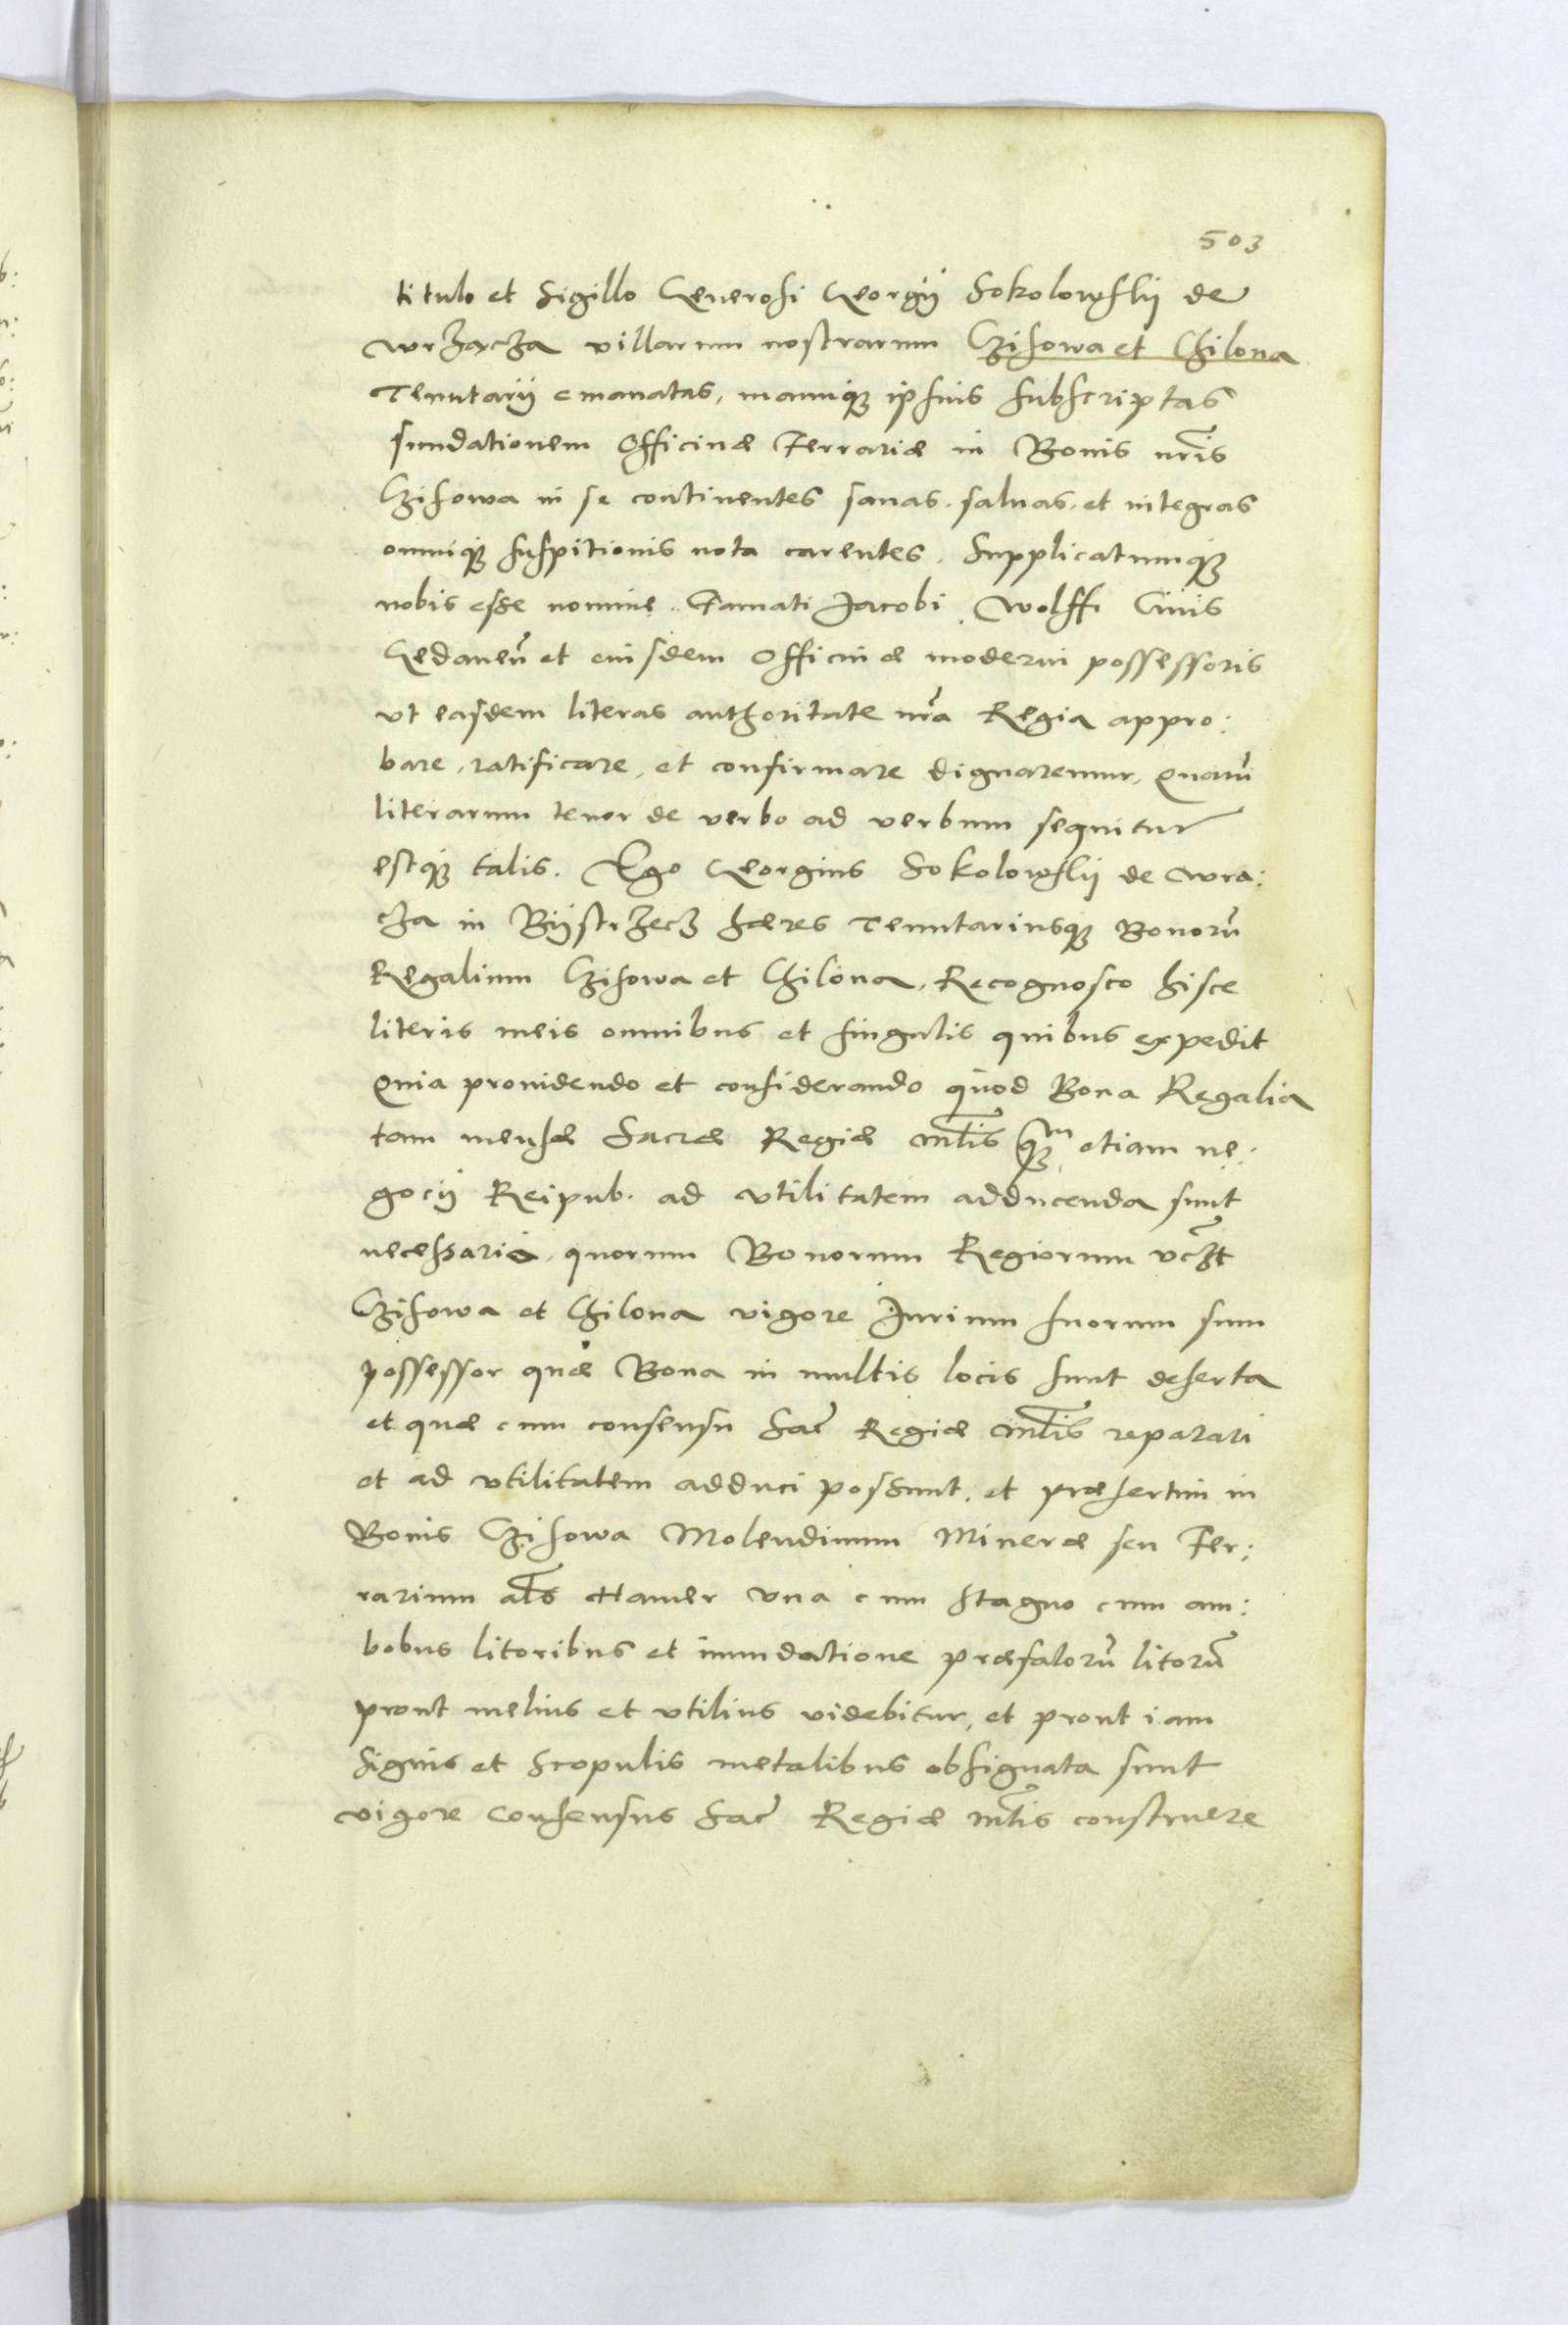 503
titulo et Sigillo Generosi Georgij Sokolowskij de
wrzącza villarum nostrarum Czisowa et Chilona
Tenutarij emanatas, manuq̃ ipsius subscriptas
fundationem Officinæ Ferrariæ in Bonis nr̃is
Czisowa in se continentes sanas. saluas. et integras
omniq̃ suspitionis nota carentes. Supplicatumq̃
nobis esse nomine Famati Jacobi Wolff Ciuis
Gedaneñ et eiusdem Officinæ moderni possessoris
vt easdem literas authoritate nr̃a Regia appro:
bare, ratificare, et confirmare dignaremur, Quarũ
literarum tenor de verbo ad verbum sequitur
estq̃ talis. Ego Georgius Sokolowskij de wrza:
cza in Bijstrzecz hæres Tenutariusq̃ Bonorũ
Regalium Czisowa et Chilona, Recognosco hisce
literis meis omnibus et singulis quibus expedit
Quia prouidendo et considerando quod Bona Regalia
tam mensæ Sacræ Regiæ Mt̃is q̃m etiam ne:
gocij Reipub. ad vtilitatem adducenda sunt
necessario, quorum Bonorum Regiorum vcz̃t
Czisowa et Chilona vigore Jurium suorum sum
possessor quæ Bona in multis locis sunt deserta
et quæ cum consensu Sac̃ Regiæ Mt̃is reparari
et ad vtilitatem adduci possunt. et præsertim in
Bonis Czisowa Molendinum Mineræ seu Fer:
rarium al̃s Hamer vna cum stagno cum am:
bobus litoribus et inundatione præfatorũ litorũ
prout melius et vtilius videbitur, et prout iam
signis et scopulis metalibus obsignata sunt
vigore consensus Sac̃ Regiæ Mt̃is construere